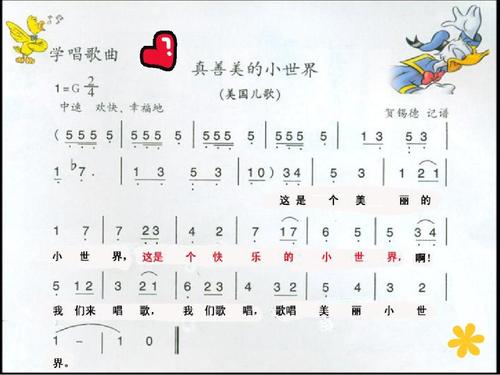 学唱歌曲
真善美的小世界
1=G 2/4
(美国儿歌)
中速 欢快、幸福地
贺锡德 记谱
(555 555 | 555 555 | 1 3 53 |
1 ♭7. | 1 3 5 3 | 10) 34 | 5 3 1 2 1 |
这是 个 美 丽的
1 7 | 7 23 | 4 2 7 1 | 7 6 | 5 5 34 |
小世界，这是 个快乐的 小世界，啊!
5 12 | 3 1 2 3 | 2 6 23 | 4 3 2 | 1 5 4 3 |
我们来唱歌，我们歌唱，歌唱 美丽小世
1 - | 1 0 ‖
界。